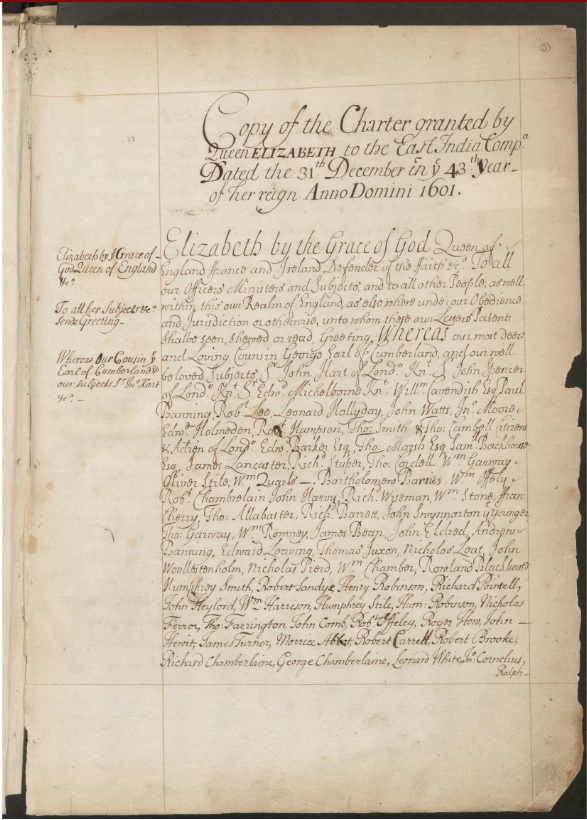 Copy of the Charter granted by
Queen ELIZABETH to the East India Comp.ª
Dated the 31.th December in ẏ 43.th Year
of her reign Anno Domini 1601.
Elizabeth by ẏ Grace of
God Queen of England
&c.ª
To all her Subjects &c.ª
Sends Greeting
Whereas our Cousin ẏ
Earl of Cumberland &
our subjects S.r Jn.º Hart
&c.ª
Elizabeth by the Grace of God Queen of
England france and Ireland Defender of the faith &c.ª To all
our Officers Ministers and Subjects, and to all other People, as well
within this our Realm of England, as elsewhere under our Obedience
and Jurisdiction or otherwise, unto whom these our Letters Patent
shall be seen, shewed or read, Greeting. Whereas our most dear
and Loving Cousin George Earl of Cumberland, and our well
beloved Subjects, S.r John Hart of Lond.º Kn.t S.r John Spencer
of Lond.º Kn.t S.r Edw.d Michelborne Kn.t Will.m Cavendish Esq Paul
Banning, Rob.t Lee Leonard Hollyday, John Watts, Jn.º Moore,
Edw.d Holmeden, Rob.t Hampson, Tho.s Smith & Tho.s Cambell Citizens
& of Lond.º Edw.d Barker Esq, Tho.s Marsh Esq Sam.ll Backhouse
Esq, James Lancaster, Rich.d Staper, Tho.s Cordell, W.m Garway
Oliver Stile, W.m Quarles Bartholomew Barnes W.m Offely
Rob.t Chamberlain John Harvy, Rich.d Wiseman, W.m Stone, Fran:
Cherry, Tho.s Allabaster, Rich.d Barrett, John Swynnarton ẏ younger
Tho.s Garway, W.m Romney, James Bean, John Eldred, Andrew
Banning, Edward Leaving, Thomas Juxon, Nicholas Leat, John
Woollestenholm, Nicholas Pierd, W.m Chamber, Rowland Blackhouse
Humphrey Smith, Robert Sandye Henry Robinson, Richard Pointell,
John Heylord, W.m Harrison, Humphrey Stile, Hum: Robinson, Nicholas
Ferror, Tho.s Farrington, John Comb, Rob.t Offeley, Roger How, John
Hewit, James Turner, Morrice Abbot Robert Carrell, Robert Brooke,
Richard Chamberlaine, George Chamberlaine, Leonard White, Jn.º Cornelius,
Ralph